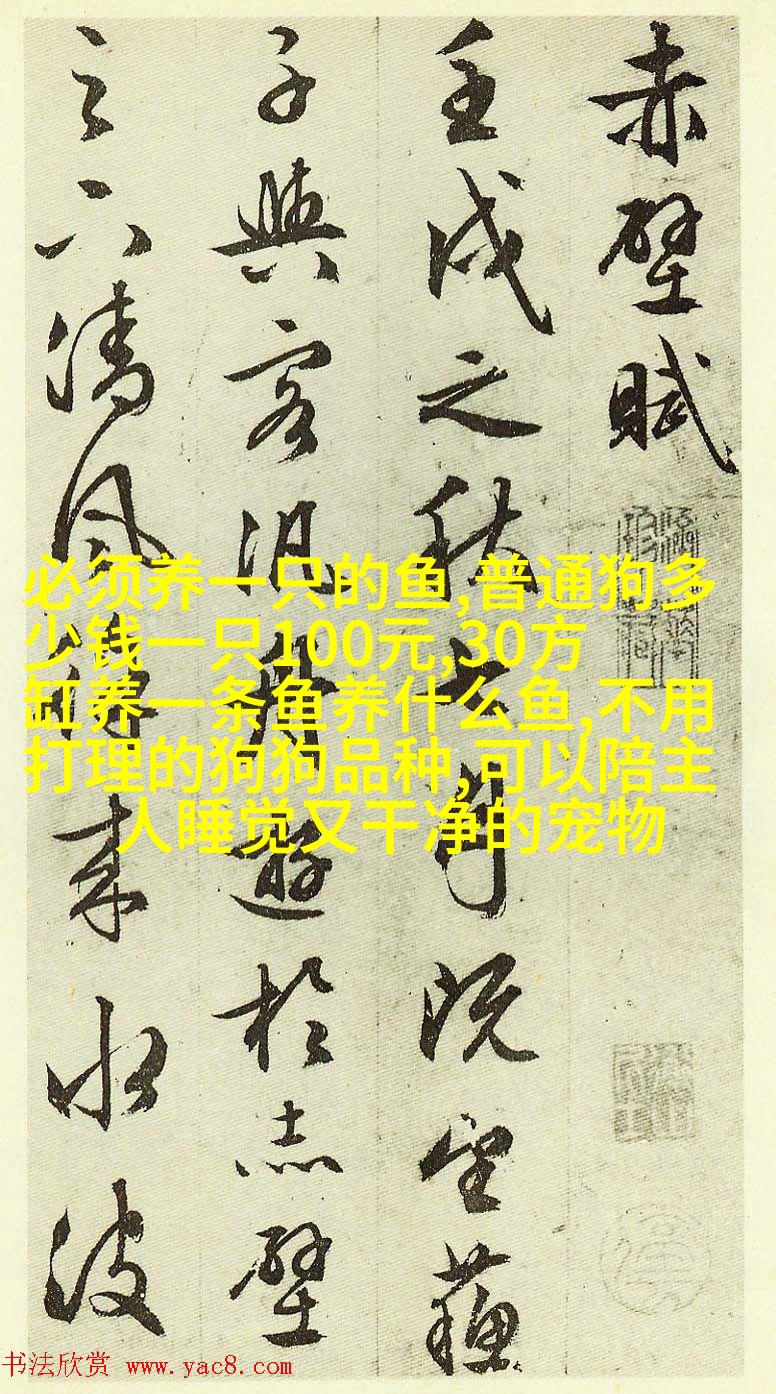 赤壁賦
壬戌之秋七月既望蘇
子與客汎舟遊於赤壁
之下清風徐來水波
必须养一只的鱼,普通狗多
少钱一只100元,30方
缸养一条鱼养什么鱼,不用
打理的狗狗品种,可以陪主
人睡觉又干净的宠物
书法欣赏 www.yac8.com